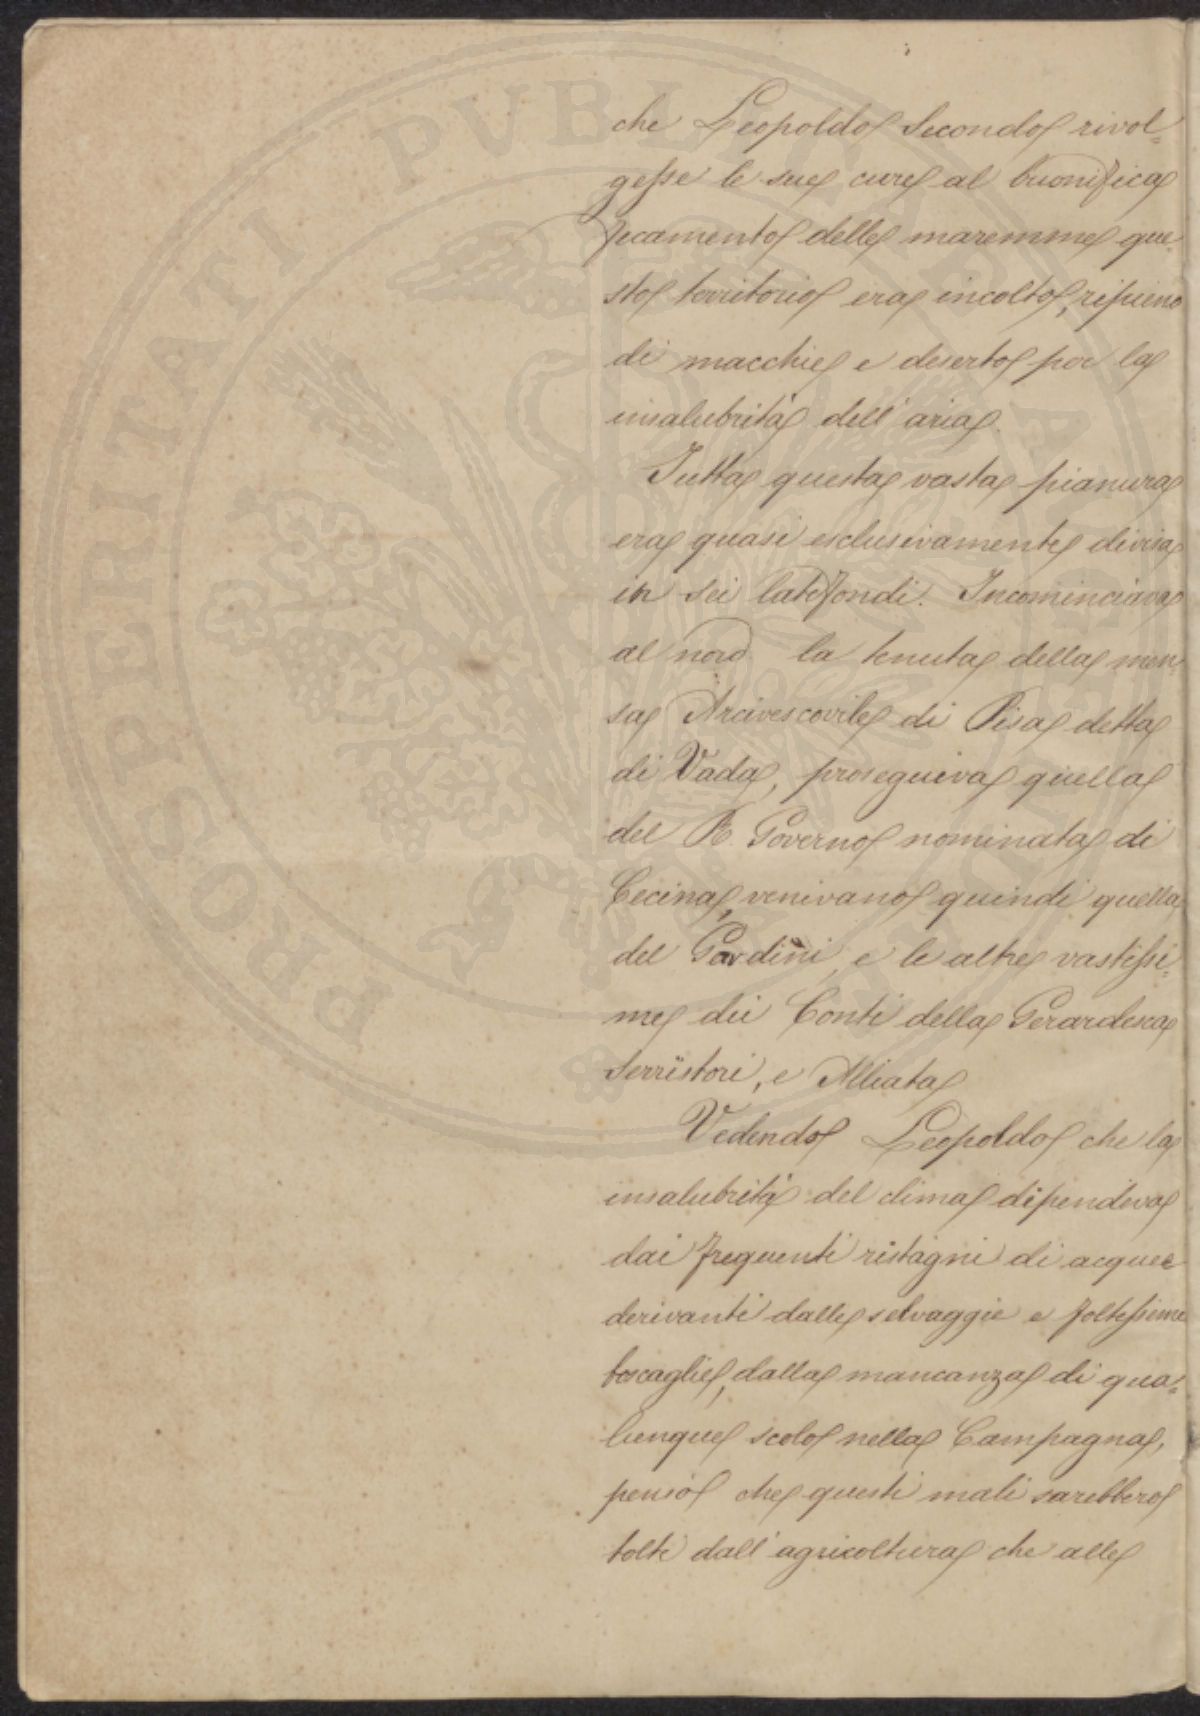 che Leopoldo Secondo rivol=
gesse le sue cure al buonifica
ficamento delle maremme que=
sto territorio era incolto, ripieno
di macchie e deserto per la
insalubrità dell'aria.
Tutta questa vasta pianura
era quasi esclusivamente divisa
in sei latifondi. Incominciava
al nord la tenuta della men=
sa Arcivescovile di Pisa detta
di Vada, proseguiva quella
del R. Governo nominata di
Cecina, venivano quindi quella
del Gardini, e le altre vastissi=
me dei Conti della Gerardesca
Serristori, e Alliata
Vedendo Leopoldo che la
insalubrità del clima dipendeva
dai frequenti ristagni di acque
derivanti dalle selvaggie e foltissime
boscaglie, dalla mancanza di qua=
lunque scolo nella Campagna,
pensò che questi mali sarebbero
tolti dall'agricoltura che alle
PROSPERITATI PVBLICAE AVGENDAE